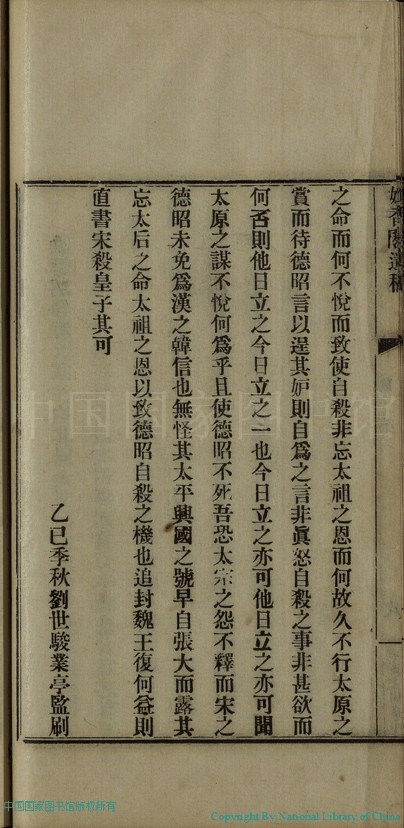 之命而何不悅而致使自殺非忘太祖之恩而何故久不行太原之
賞而待德昭言以逞其妒則自爲之言非眞怒自殺之事非甚欲而
何否則他日立之今日立之一也今日立之亦可他日立之亦可聞
太原之謀不悅何爲乎且使德昭不死吾恐太宗之怨不釋而宋之
德昭未免爲漢之韓信也無怪其太平興國之號早自張大而露其
忘太后之命太祖之恩以致德昭自殺之機也追封魏王復何益則
直書宋殺皇子其可
乙巳季秋劉世駿業亭監刷
中国国家图书馆
中国国家图书馆版权所有
Copyright By National Library of China